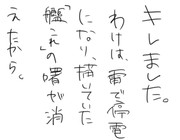 キレました。
わけは、雷で停電
になり、描いていた
「艦これ」の曙が消
えたから。